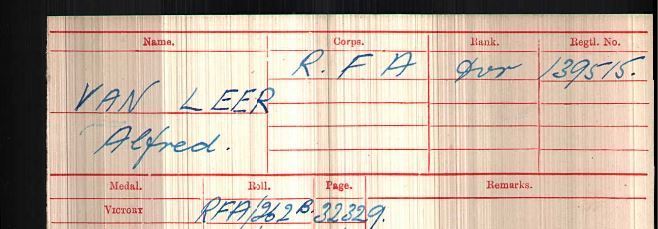 Name. Corps. Rank. Regtl. No.
VAN LEER R. F A Dvr 139515.
Alfred.
Medal. Roll. Page. Remarks.
VICTORY RFA/262B. 32329.